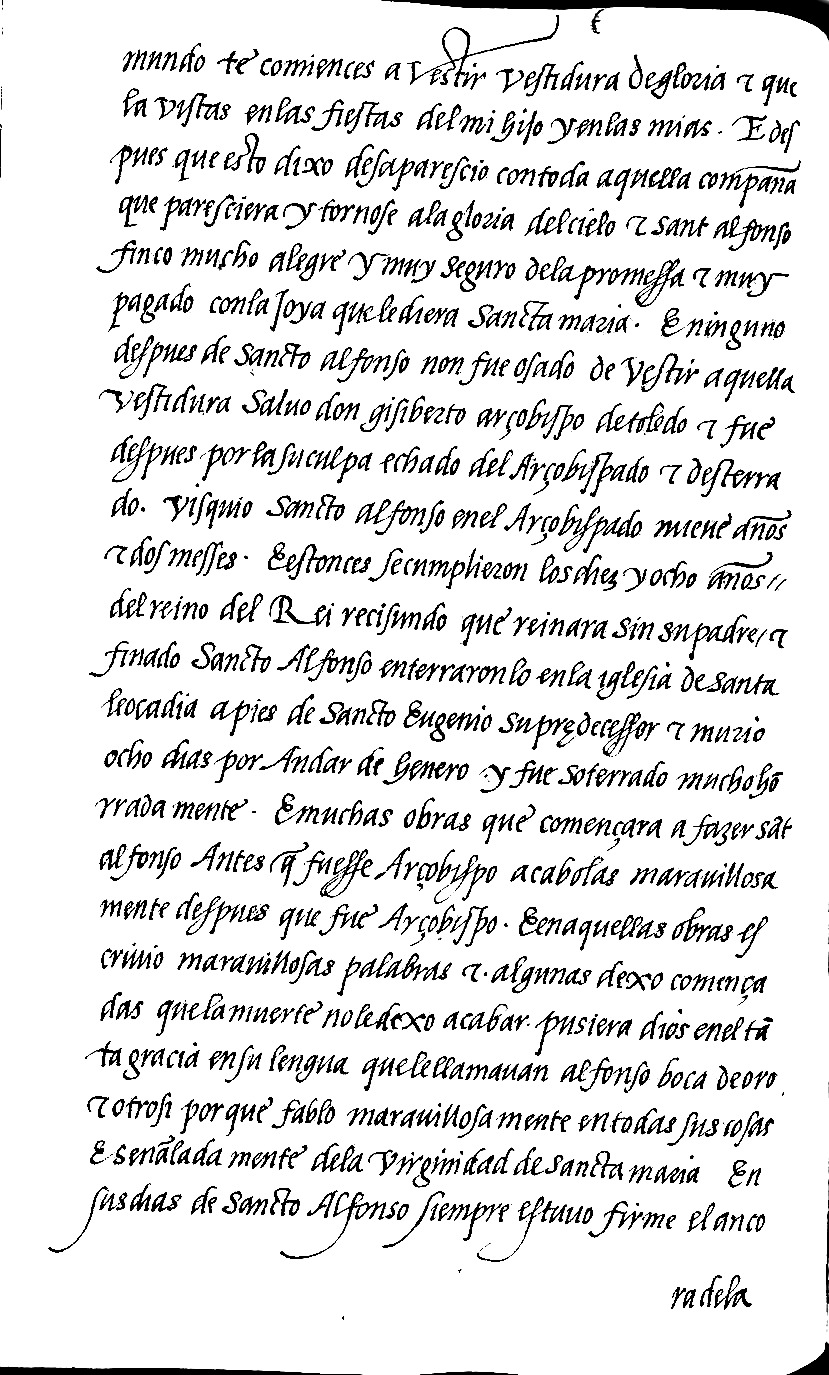 mundo te comiences a Vestir Vestidura de gloria ⁊ que
la vistas en las fiestas del mi hijo y en las mias. E des
pues que esto dixo desaparescio con toda aquella compan̄a
que paresciera y tornose a la gloria del cielo ⁊ sant alfonso
finco mucho alegre y muy seguro de la promessa ⁊ muy
pagado con la Joya que le diera Sancta maria. E ninguno
despues de Sancto alfonso non fue osado de Vestir aquella
Vestidura Saluo don gisiberto arçobispo de toledo ⁊ fue
despues por la su culpa echado del Arçobispado ⁊ desterra
do. Visquio Sancto alfonso en el Arçobispado nueue an̄os
⁊ dos messes. E estonces se cumplieron los diez y ocho an̄os //
del reino del Rei recisundo que reinara sin su padre / ⁊
finado Sancto Alfonso enterraron lo en la iglesia de Santa
leocadia a pies de Sancto Eugenio su predecessor ⁊ murio
ocho dias por Andar de henero y fue soterrado mucho hō
rrada mente. E muchas obras que començara a fazer sāt
alfonso Antes q̄ fuesse Arçobispo acabolas marauillosa
mente despues que fue Arçobispo. E en aquellas obras es
criuio marauillosas palabras ⁊. algunas dexo comença
das que la muerte no le dexo acabar. pusiera dios en el tā
ta gracia en su lengua que le llamauan alfonso boca de oro
⁊ otrosi por que fablo marauillosa mente en todas sus cosas
E sen̄alada mente de la Virginidad de Sancta maria En
sus dias de Sancto Alfonso siempre estuuo firme el anco
ra de la